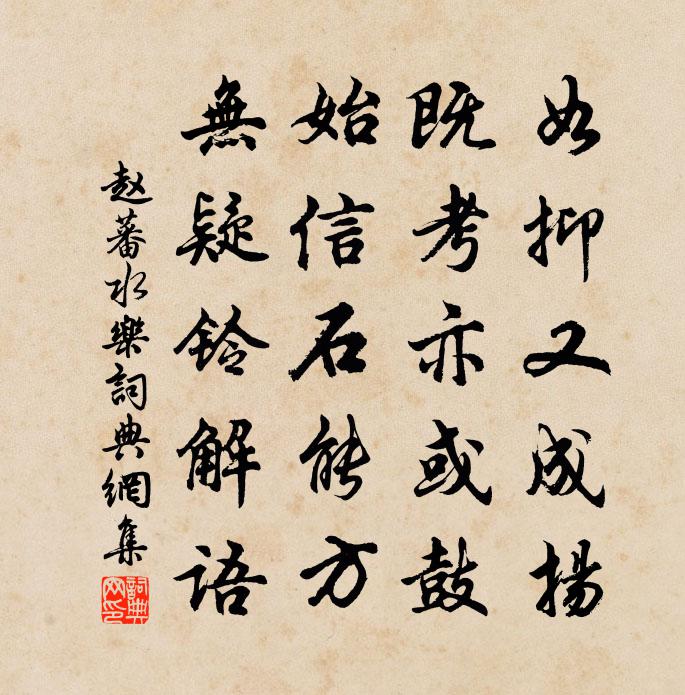 如抑又成揚
既考亦或鼓
始信石能方
無疑鈴解语
赵蕃水樂詞典網集
詞典网印